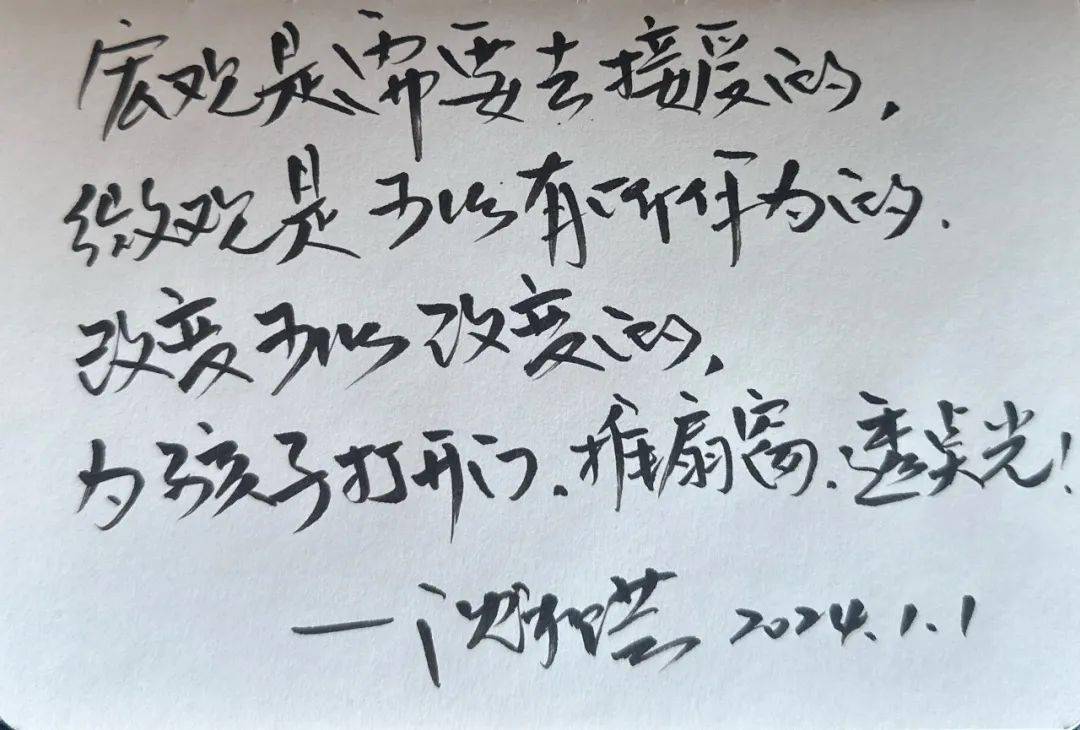 宏观是需要去接受的，
微观是可以有所作为的.
改变可以改变的，
为孩子打开门.推扇窗.透点光！
—— 2024.1.1